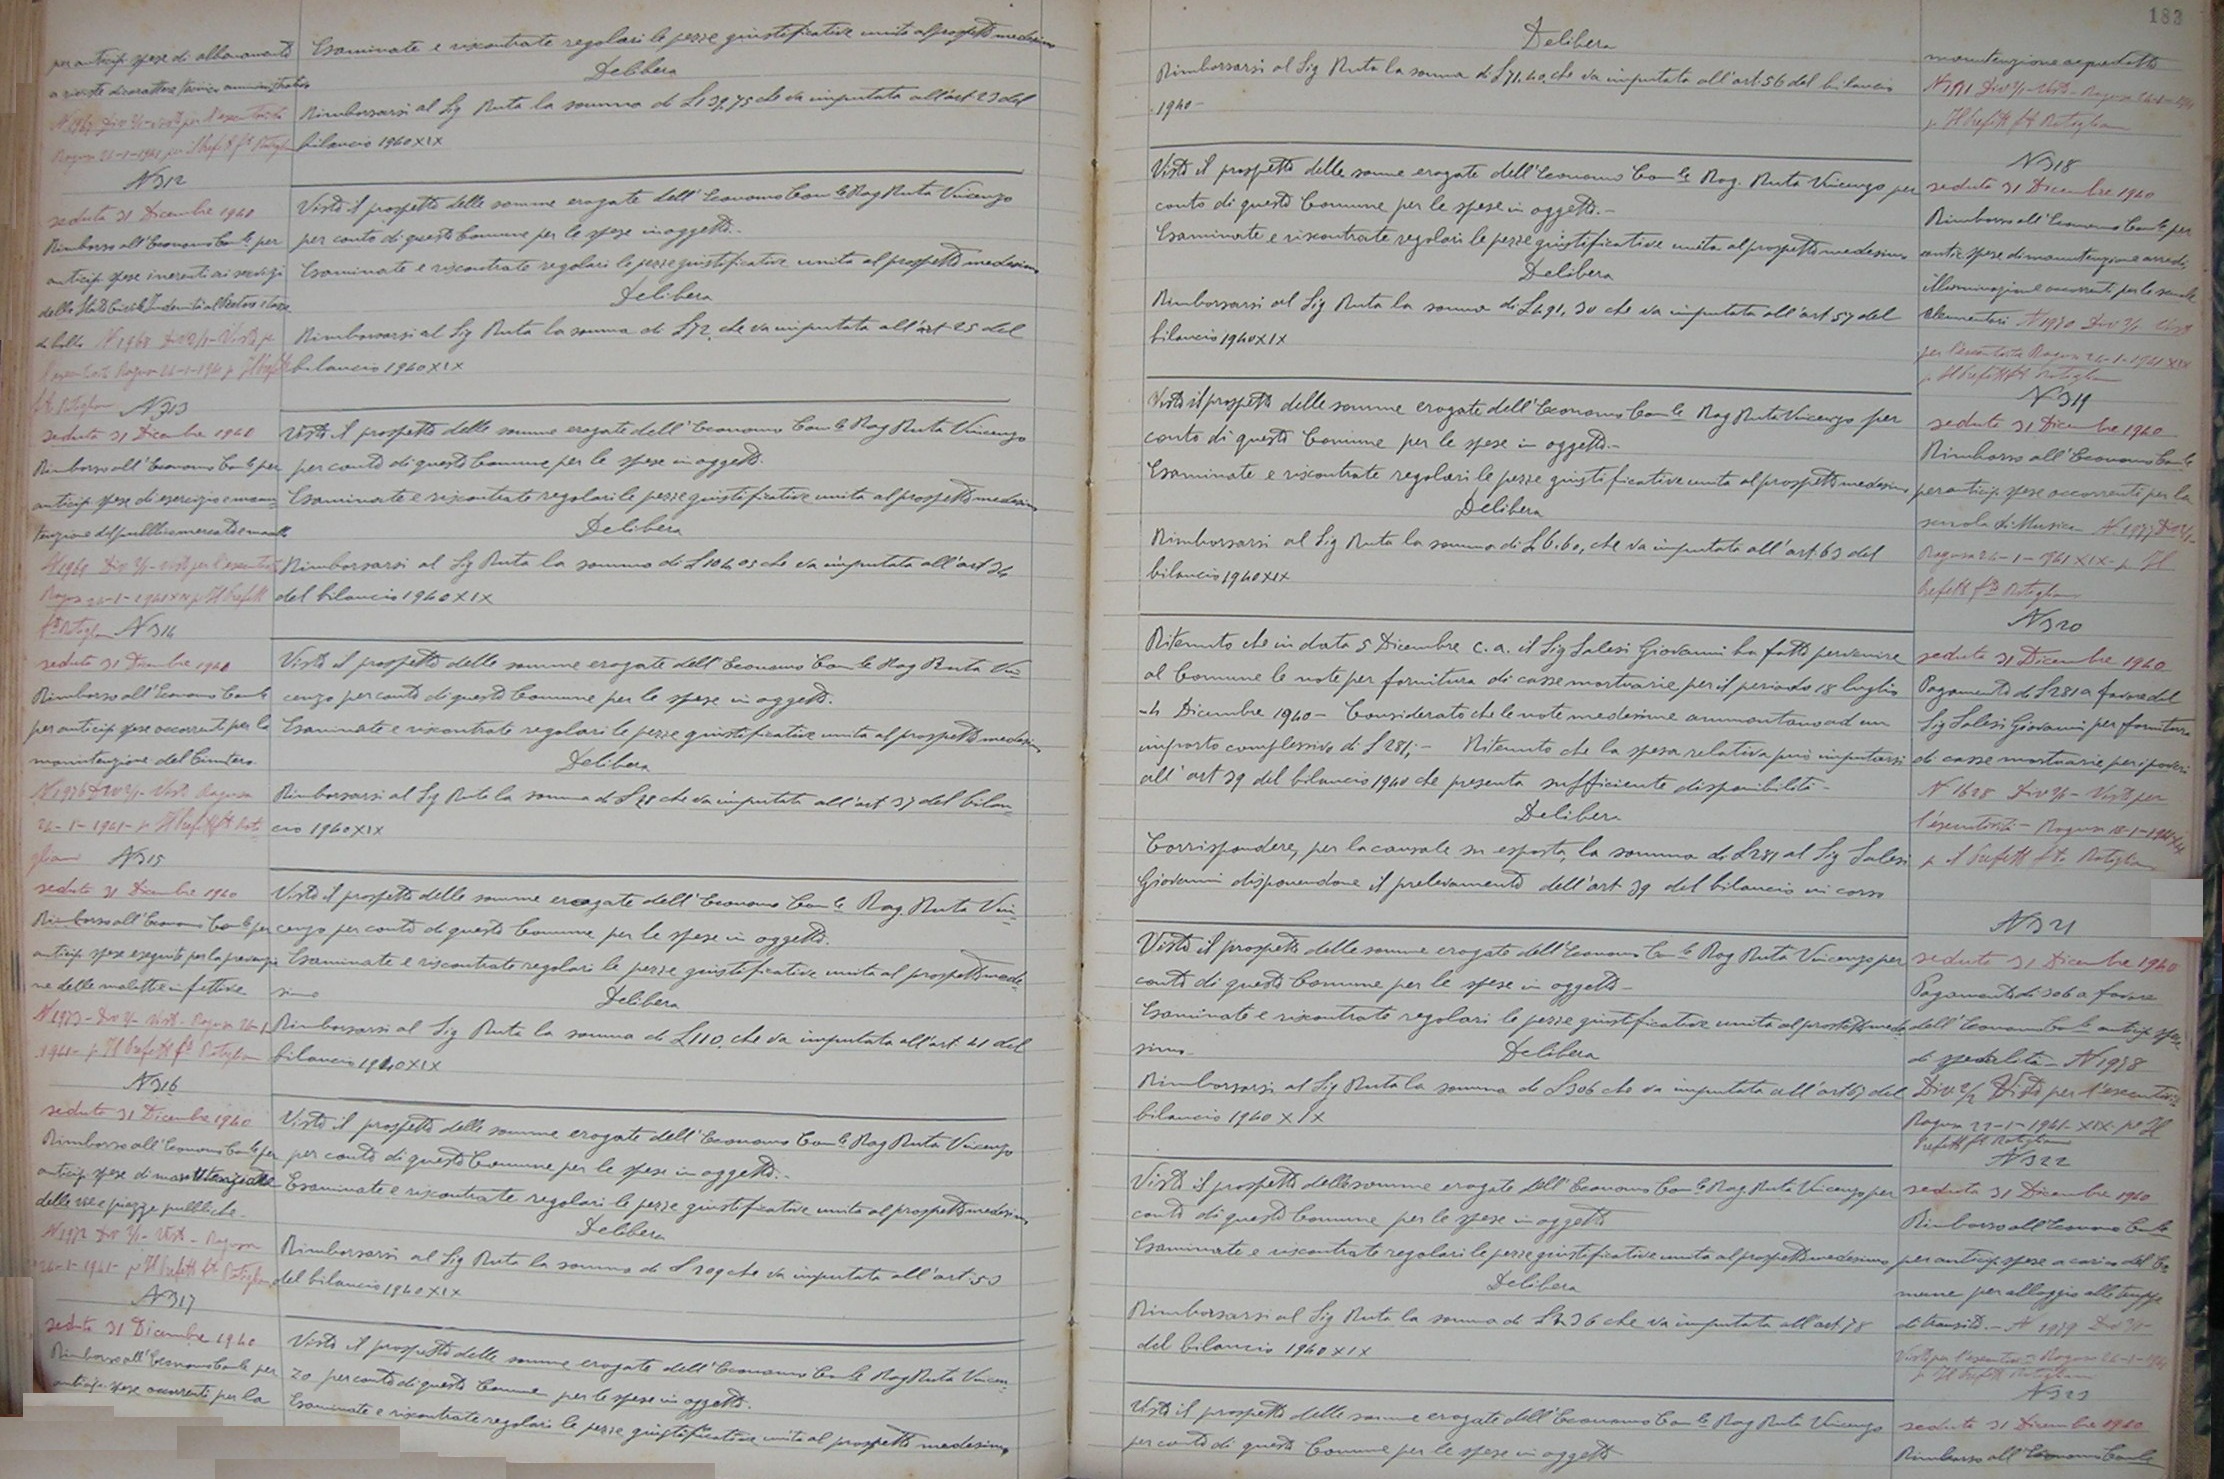 per anticip. spese di abbonamento
a riviste di carattere tecnico amministrativo
N 1967 Div 2/1 - Visto per l'esecutorietà
Ragusa 24-1-1941 per il Prefetto fto Rotigliano
Esaminate e riscontrate regolari le pezze giustificative unite al prospetto medesimo
Delibera
Rimborsarsi al Sig Ruta la somma di £ 139,75 che va imputata all'art 23 del
bilancio 1940 XIX
N 312
seduta 31 Dicembre 1940
Rimborso all'Economo Com.le per
anticip. spese inerenti ai servizi
dello Stato Civile
di bollo N 1968 Div 2/1 - Visto per
l'esecutorietà Ragusa 24-1-1941 p Il Prefetto
fto Rotigliano
Visto il prospetto delle somme erogate dell'Economo Com.le Rag Ruta Vincenzo
per conto di questo Comune per le spese in oggetto.-
Esaminate e riscontrate regolari le pezze giustificative unite al prospetto medesimo
Delibera
Rimborsarsi al Sig Ruta la somma di £ 72, che va imputata all'art 25 del
bilancio 1940 XIX
N 313
seduta 31 Dicembre 1940
Rimborso all'Economo Com.le per
anticip. spese di esercizio e manu
tenzione del pubblico mercato e
N 1969 Div 2/1 - visto per l'esecutorietà
Ragusa 24-1-1941 XIX p Il Prefetto
fto Rotigliano
Visto il prospetto delle somme erogate dell'Economo Com.le Rag Ruta Vincenzo
per conto di questo Comune per le spese in oggetto.
Esaminate e riscontrate regolari le pezze giustificative unite al prospetto medesimo
Delibera
Rimborsarsi al Sig Ruta la somma di £ 104,05 che va imputata all'art 34
del bilancio 1940 XIX
N 314
seduta 31 Dicembre 1940
Rimborso all'Economo Com.le
per anticip. spese occorrenti per la
manutenzione del Cimitero.
N 1976 Div 2/1 - Visto Ragusa
24-1-1941 - p Il Prefetto fto Roti
gliano
Visto il prospetto delle somme erogate dell'Economo Com.le Rag Ruta Vin
cenzo per conto di questo Comune per le spese in oggetto.
Esaminate e riscontrate regolari le pezze giustificative unite al prospetto medesimo
Delibera
Rimborsarsi al Sig Ruta la somma di £ 28 che va imputata all'art 37 del bilan
cio 1940 XIX
N 315
seduta 31 Dicembre 1940
Rimborso all'Economo Com.le per
anticip. spese eseguite per la prevenzio
ne delle malattie infettive
N 1973 - Div 2/1 - Visto - Ragusa 24-1
1941 - p Il Prefetto fto Rotigliano
Visto il prospetto delle somme erogate dell'Economo Com.le Rag. Ruta Vin
cenzo per conto di questo Comune per le spese in oggetto.
Esaminate e riscontrate regolari le pezze giustificative unite al prospetto mede
simo
Delibera
Rimborsarsi al Sig Ruta la somma di £ 110, che va imputata all'art. 41 del
bilancio 1940 XIX
N 316
seduta 31 Dicembre 1940
Rimborso all'Economo Com.le per
anticip. spese di manutenzione
delle vie e piazze pubbliche.
N 1972 Div 2/1 - Visto - Ragusa
24-1-1941 - p Il Prefetto fto Rotigliano
Visto il prospetto delle somme erogate dell'Economo Com.le Rag Ruta Vincenzo
per conto di questo Comune per le spese in oggetto.-
Esaminate e riscontrate regolari le pezze giustificative unite al prospetto medesimo
Delibera
Rimborsarsi al Sig Ruta la somma di £ 209 che va imputata all'art 53
del bilancio 1940 XIX
N 317
seduta 31 Dicembre 1940
Rimborso all'Economo Com.le per
anticip. spese occorrenti per la
Visto il prospetto delle somme erogate dell'Economo Com.le Rag Ruta Vincen
zo per conto di questo Comune per le spese in oggetto.
Esaminate e riscontrate regolari le pezze giustificative unite al prospetto medesimo
183
Delibera
Rimborsarsi al Sig Ruta la somma di £ 71,40, che va imputata all'art. 56 del bilancio
1940 -
manutenzione acquedotto
N 1971 Div 2/1 - Visto - Ragusa 24-1-1941
p Il Prefetto fto Rotigliano
Visto il prospetto delle somme erogate dell'Economo Com.le Rag. Ruta Vincenzo per
conto di questo Comune per le spese in oggetto.-
Esaminate e riscontrate regolari le pezze giustificative unite al prospetto medesimo
Delibera
Rimborsarsi al Sig Ruta la somma di £ 491,30 che va imputata all'art 57 del
bilancio 1940 XIX
N 318
seduta 31 Dicembre 1940
Rimborso all'Economo Com.le per
antic. spese di manutenzione arredi,
illuminazione occorrenti per le scuole
Elementari N 1970 Div 2/1 Visto
per l'esecutorietà Ragusa 24-1-1941 XIX
p Il Prefetto fto Rotigliano
Visto il prospetto delle somme erogate dell'Economo Com.le Rag Ruta Vincenzo per
conto di questo Comune per le spese in oggetto.-
Esaminate e riscontrate regolari le pezze giustificative unite al prospetto medesimo
Delibera
Rimborsarsi al Sig Ruta la somma di £ 6,60, che va imputata all'art. 63 del
bilancio 1940 XIX
N 319
seduta 31 Dicembre 1940
Rimborso all'Economo Com.le
per anticip. spese occorrenti per la
scuola di Musica - N 1977 Div 2/1-
Ragusa 24-1-1941 XIX - p Il
Prefetto fto Rotigliano
Ritenuto che in data 5 Dicembre c.a. il Sig Salesi Giovanni ha fatto pervenire
al Comune le note per fornitura di casse mortuarie per il periodo 18 luglio
-4 Dicembre 1940 - Considerato che le note medesime ammontano ad un
importo complessivo di £ 281,- Ritenuto che la spesa relativa può imputarsi
all'art 39 del bilancio 1940 che presenta sufficiente disponibilità -
Delibera
Corrispondere, per la causale su esposta, la somma di £ 281 al Sig Salesi
Giovanni disponendone il prelevamento dell'art 39 del bilancio in corso
N 320
seduta 31 Dicembre 1940
Pagamento di £ 281 a favore del
Sig Salesi Giovanni per fornitura
di casse mortuarie per i poveri
N 1628 Div 2/1 - Visto per
l'esecutorietà - Ragusa 18-1-1941 XIX
p il Prefetto fto Rotigliano
Visto il prospetto delle somme erogate dell'Economo Com.le Rag Ruta Vincenzo per
conto di questo Comune per le spese in oggetto -
Esaminate e riscontrate regolari le pezze giustificative unite al prospetto mede
simo -
Delibera
Rimborsarsi al Sig Ruta la somma di £ 306 che va imputata all'art 67 del
bilancio 1940 XIX
N 321
seduta 31 Dicembre 1940
Pagamento di 306 a favore
dell'Economo Com.le anticip. spese
di spedalità - N 1978
Div 2/1 Visto per l'esecutorietà
Ragusa 27-1-1941 - XIX - p Il
Prefetto fto Rotigliano
Visto il prospetto delle somme erogate dell'Economo Com.le Rag Ruta Vincenzo per
conto di questo Comune per le spese in oggetto
Esaminate e riscontrate regolari le pezze giustificative unite al prospetto medesimo
Delibera
Rimborsarsi al Sig Ruta la somma di £ 436 che va imputata all'art 78
del bilancio 1940 XIX
N 322
seduta 31 Dicembre 1940
Rimborso all'Economo Com.le
per anticip. spese a carico del Co
mune per alloggio alle truppe
di transito. - N 1979 Div 2/1-
Visto per l'esecutorietà Ragusa 24-1-1941
p Il Prefetto Rotigliano
Visto il prospetto delle somme erogate dell'Economo Com.le Rag Ruta Vincenzo
per conto di questo Comune per le spese in oggetto
N 323
seduta 31 Dicembre 1940
Rimborso all'Economo Com.le